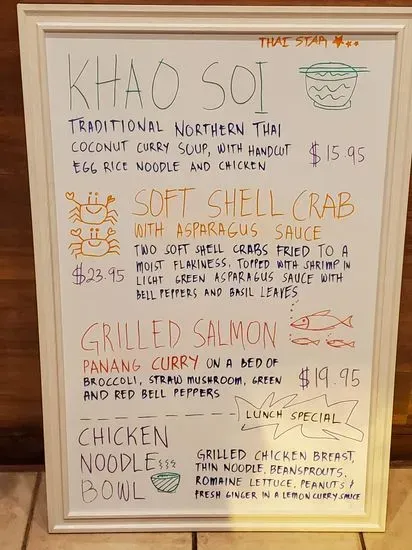 THAI STAR
KHAO SOI
TRADITIONAL NORTHERN THAI
COCONUT CURRY SOUP, WITH HANDCUT
EGG RICE NOODLE AND CHICKEN
$15.95
SOFT SHELL CRAB
WITH ASPARAGUS SAUCE
TWO SOFT SHELL CRABS FRIED TO A
MOIST FLAKINESS. TOPPED WITH SHRIMP IN
LIGHT GREEN ASPARAGUS SAUCE WITH
BELL PEPPERS AND BASIL LEAVES
$23.95
GRILLED SALMON
PANANG CURRY ON A BED OF
BROCCOLI, STRAW MUSHROOM, GREEN
AND RED BELL PEPPERS
$19.95
LUNCH SPECIAL
CHICKEN
NOODLE
BOWL
GRILLED CHICKEN BREAST,
THIN NOODLE, BEANSPROUTS,
ROMAINE LETTUCE, PEANUTS &
FRESH GINGER IN A LEMON CURRY SAUCE